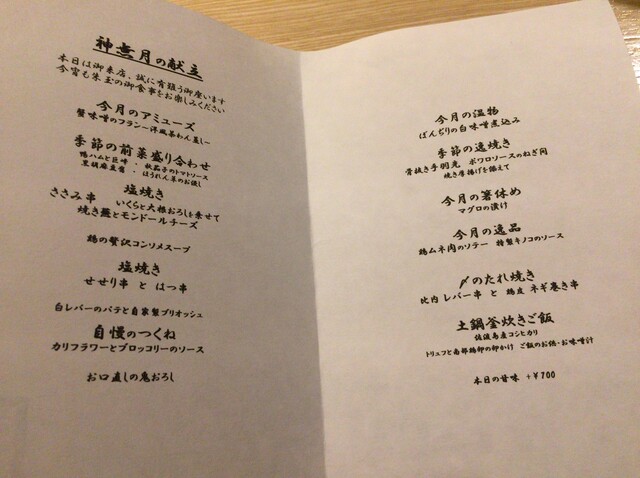 神無月の献立
本日は御来店、誠に有難う御座います
今宵も珠玉の御食事をお楽しみください
今月のアミューズ
蟹味噌のフラン〜洋風茶わん蒸し〜
季節の前菜盛り合わせ
鴨ハムと巨峰・秋茄子のトマトソース
黒胡麻豆腐・ほうれん草のお浸し
塩焼き
ささみ串 いくらと大根おろしを乗せて
焼き蕪とモンドールチーズ
鶏の贅沢コンソメスープ
塩焼き
せせり串 と はつ串
白レバーのパテと自家製ブリオッシュ
自慢のつくね
カリフラワーとブロッコリーのソース
お口直しの鬼おろし
今月の温物
ぼんぢりの白味噌煮込み
季節の逸焼き
骨抜き手羽先 ポワロソースのねぎ間
焼き厚揚げを添えて
今月の箸休め
マグロの漬け
今月の逸品
鶏ムネ肉のソテー 特製キノコのソース
〆のたれ焼き
比内レバー串 と 鶏皮 ネギ巻き串
土鍋釜炊きご飯
佐渡島産コシヒカリ
トリュフと南部鶏卵の卵かけ ご飯のお供・お味噌汁
本日の甘味 +￥700